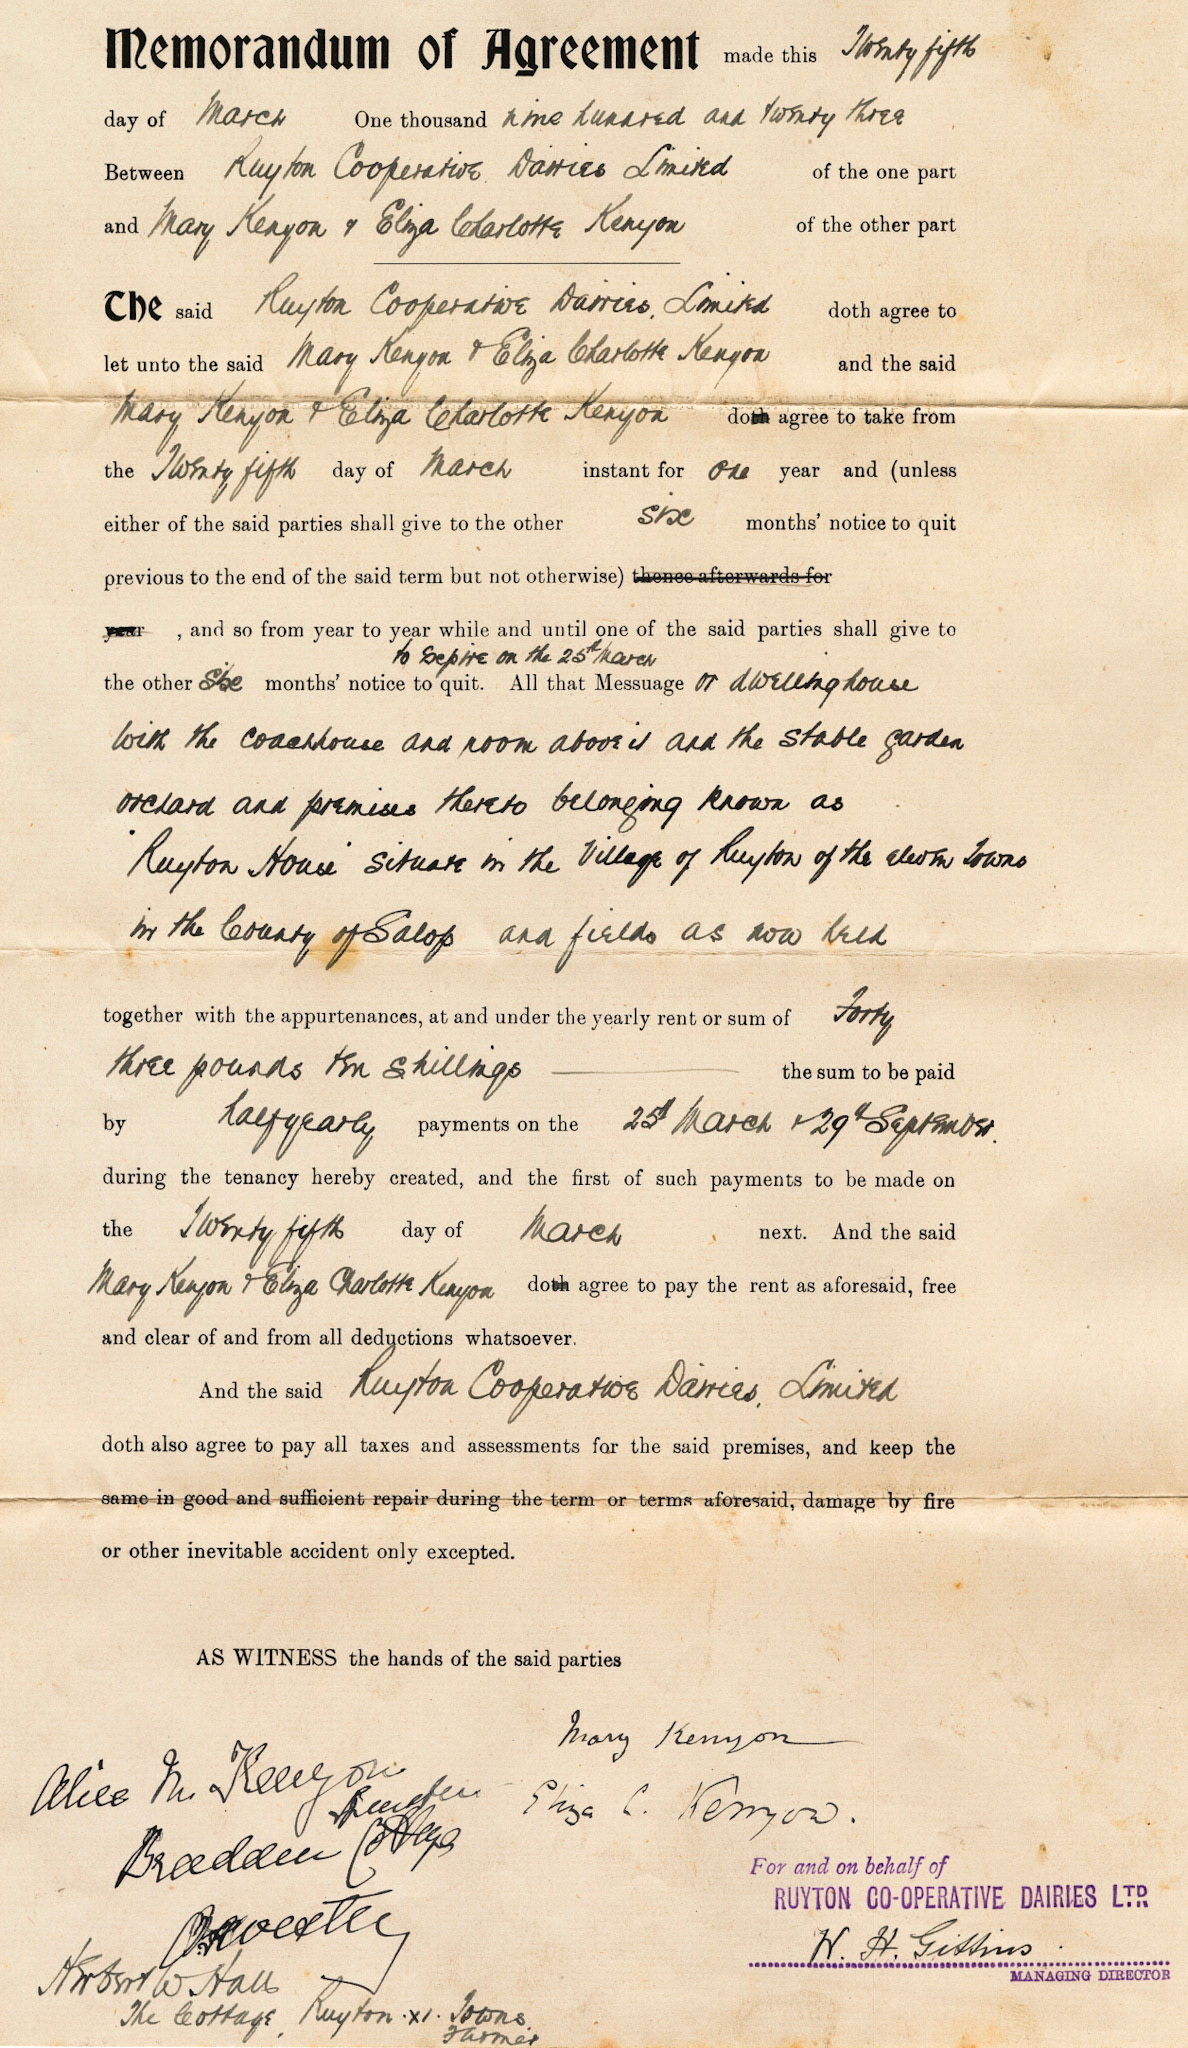 Memorandum of Agreement made this Twenty fifth
day of March One thousand nine hundred and twenty three
Between Ruyton Cooperative Dairies Limited of the one part
and Mary Kenyon & Eliza Charlotte Kenyon of the other part
The said Ruyton Cooperative Dairies, Limited doth agree to
let unto the said Mary Kenyon & Eliza Charlotte Kenyon and the said
Mary Kenyon & Eliza Charlotte Kenyon doth agree to take from
the Twenty fifth day of March instant for one year and (unless
either of the said parties shall give to the other six months' notice to quit
previous to the end of the said term but not otherwise) thence afterwards for
year , and so from year to year while and until one of the said parties shall give to
to expire on the 25th March
the other six months' notice to quit. All that Messuage or dwellinghouse
with the coachhouse and room above it and the stable garden
orchard and premises thereto belonging known as
"Ruyton House" situate in the Village of Ruyton of the eleven Towns
in the County of Salop and fields as now held
together with the appurtenances, at and under the yearly rent or sum of Forty
three pounds ten shillings the sum to be paid
by halfyearly payments on the 25th March & 29th September.
during the tenancy hereby created, and the first of such payments to be made on
the Twenty fifth day of March next. And the said
Mary Kenyon & Eliza Charlotte Kenyon doth agree to pay the rent as aforesaid, free
and clear of and from all deductions whatsoever.
And the said Ruyton Cooperative Dairies, Limited
doth also agree to pay all taxes and assessments for the said premises, and keep the
same in good and sufficient repair during the term or terms aforesaid, damage by fire
or other inevitable accident only excepted.
AS WITNESS the hands of the said parties
Mary Kenyon
Alice M. Kenyon
Eliza C. Kenyon.
For and on behalf of
RUYTON CO-OPERATIVE DAIRIES LTD.
W. H. Gittins
MANAGING DIRECTOR
Oswestry
Herbert W Hall
The Cottage, Ruyton .XI. Towns.
Farmer